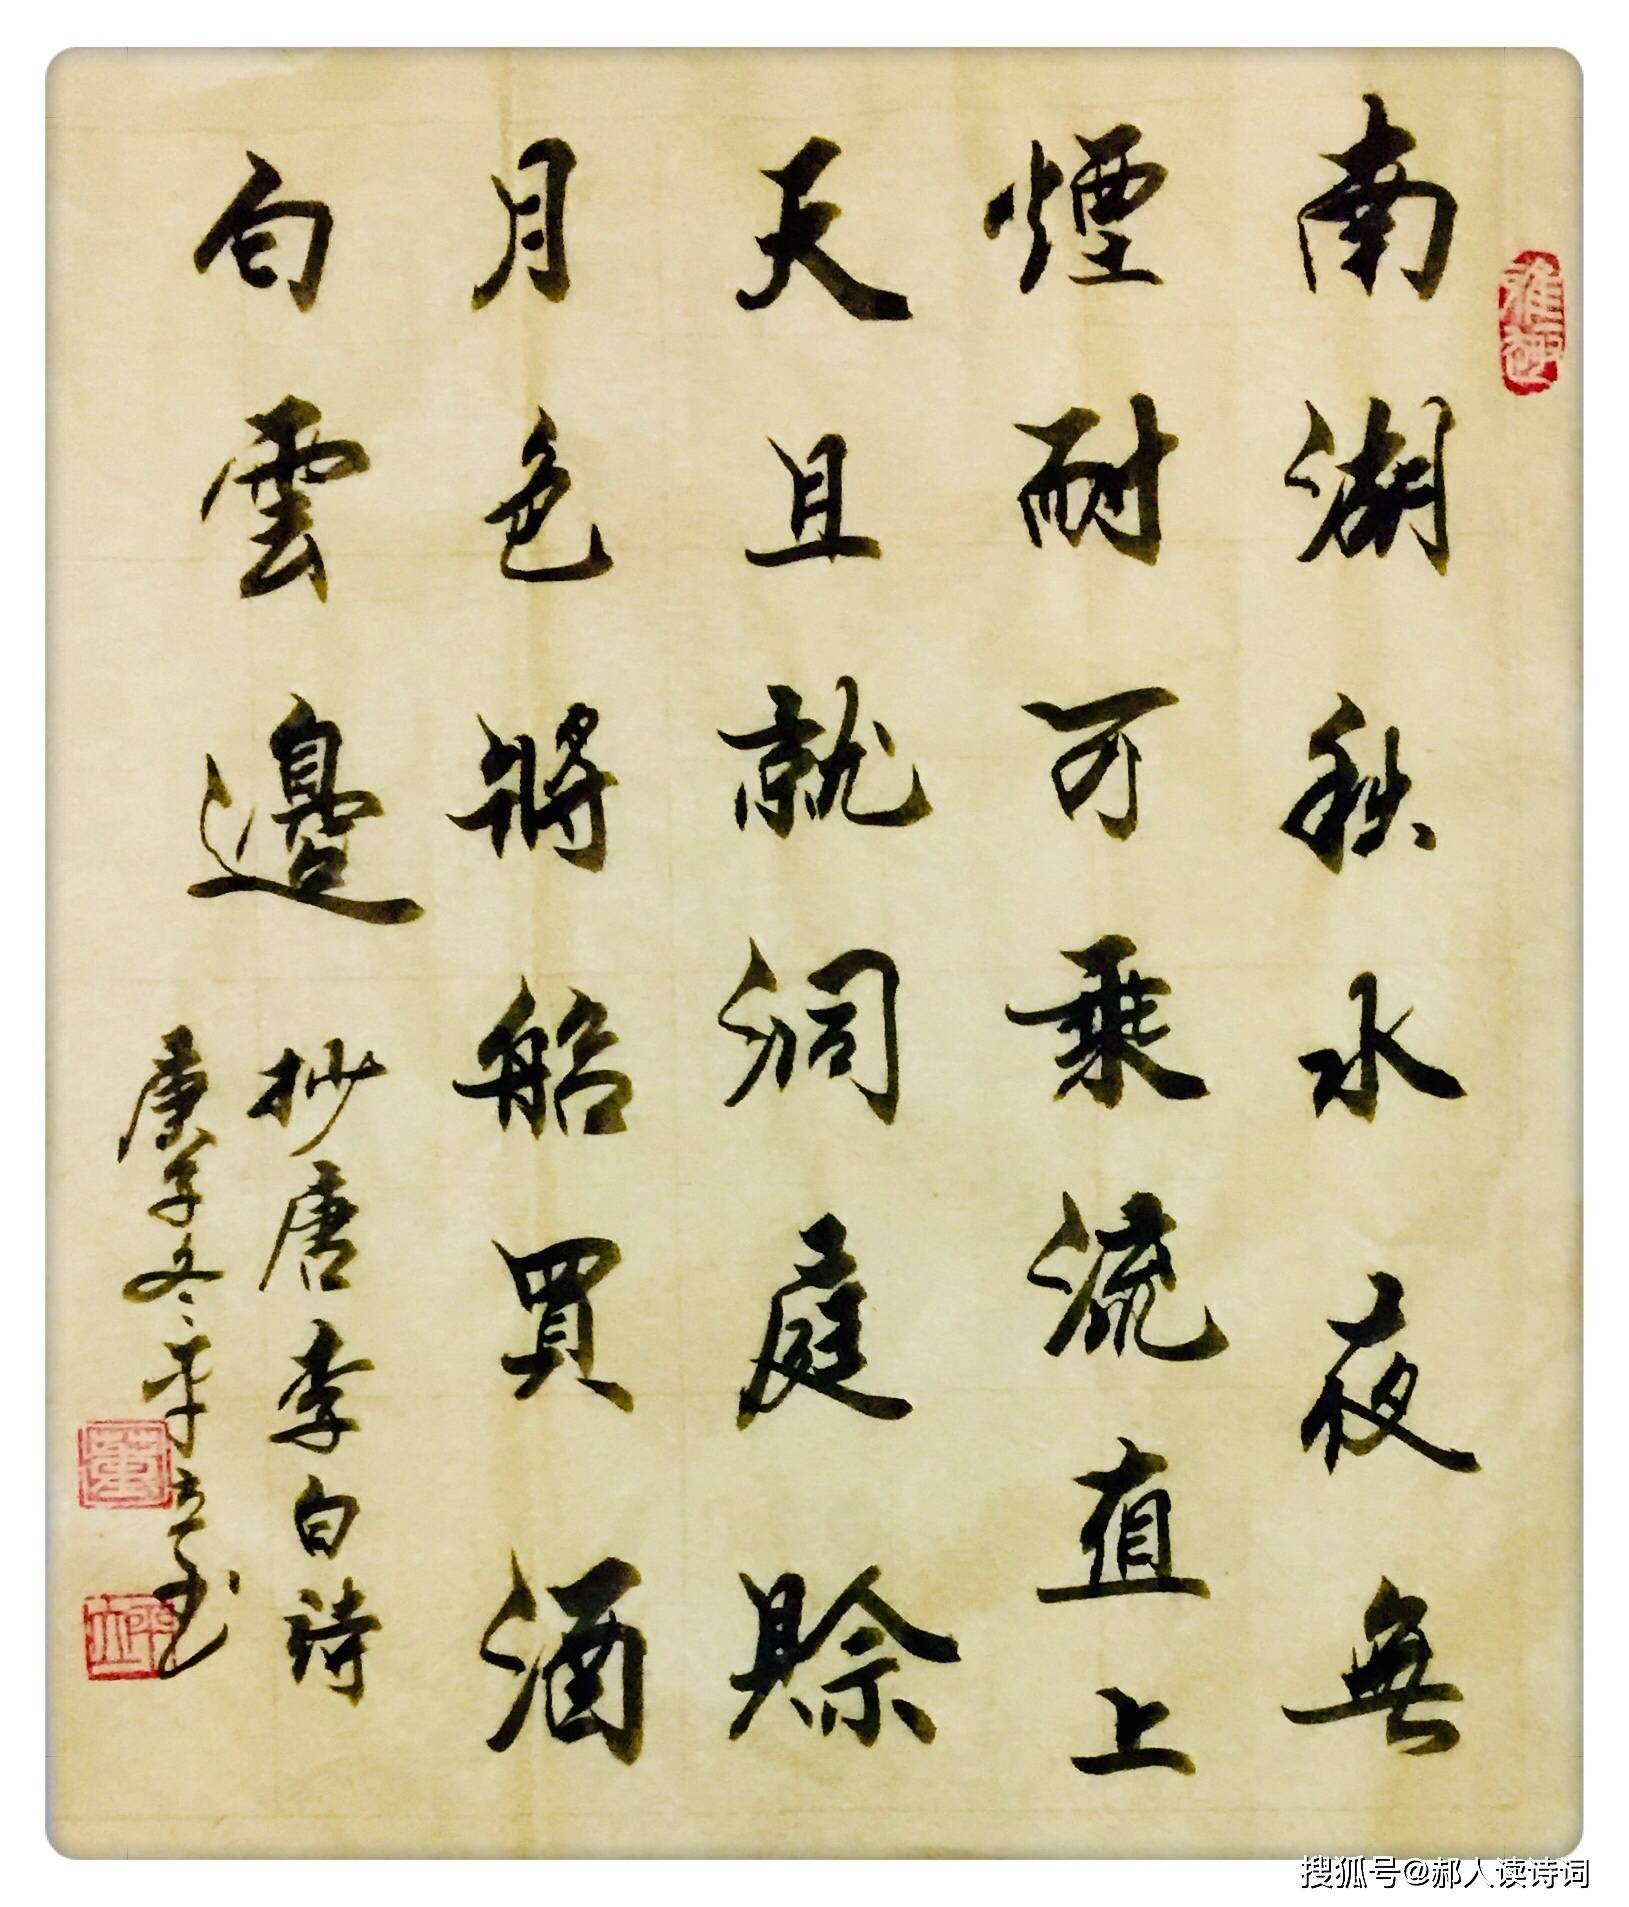 南湖秋水夜無
煙耐可乘流直上
天且就洞庭賒
月色將船買酒
白雲邊
抄唐李白詩
庚子冬平立書
董
搜狐号@郝人读诗词